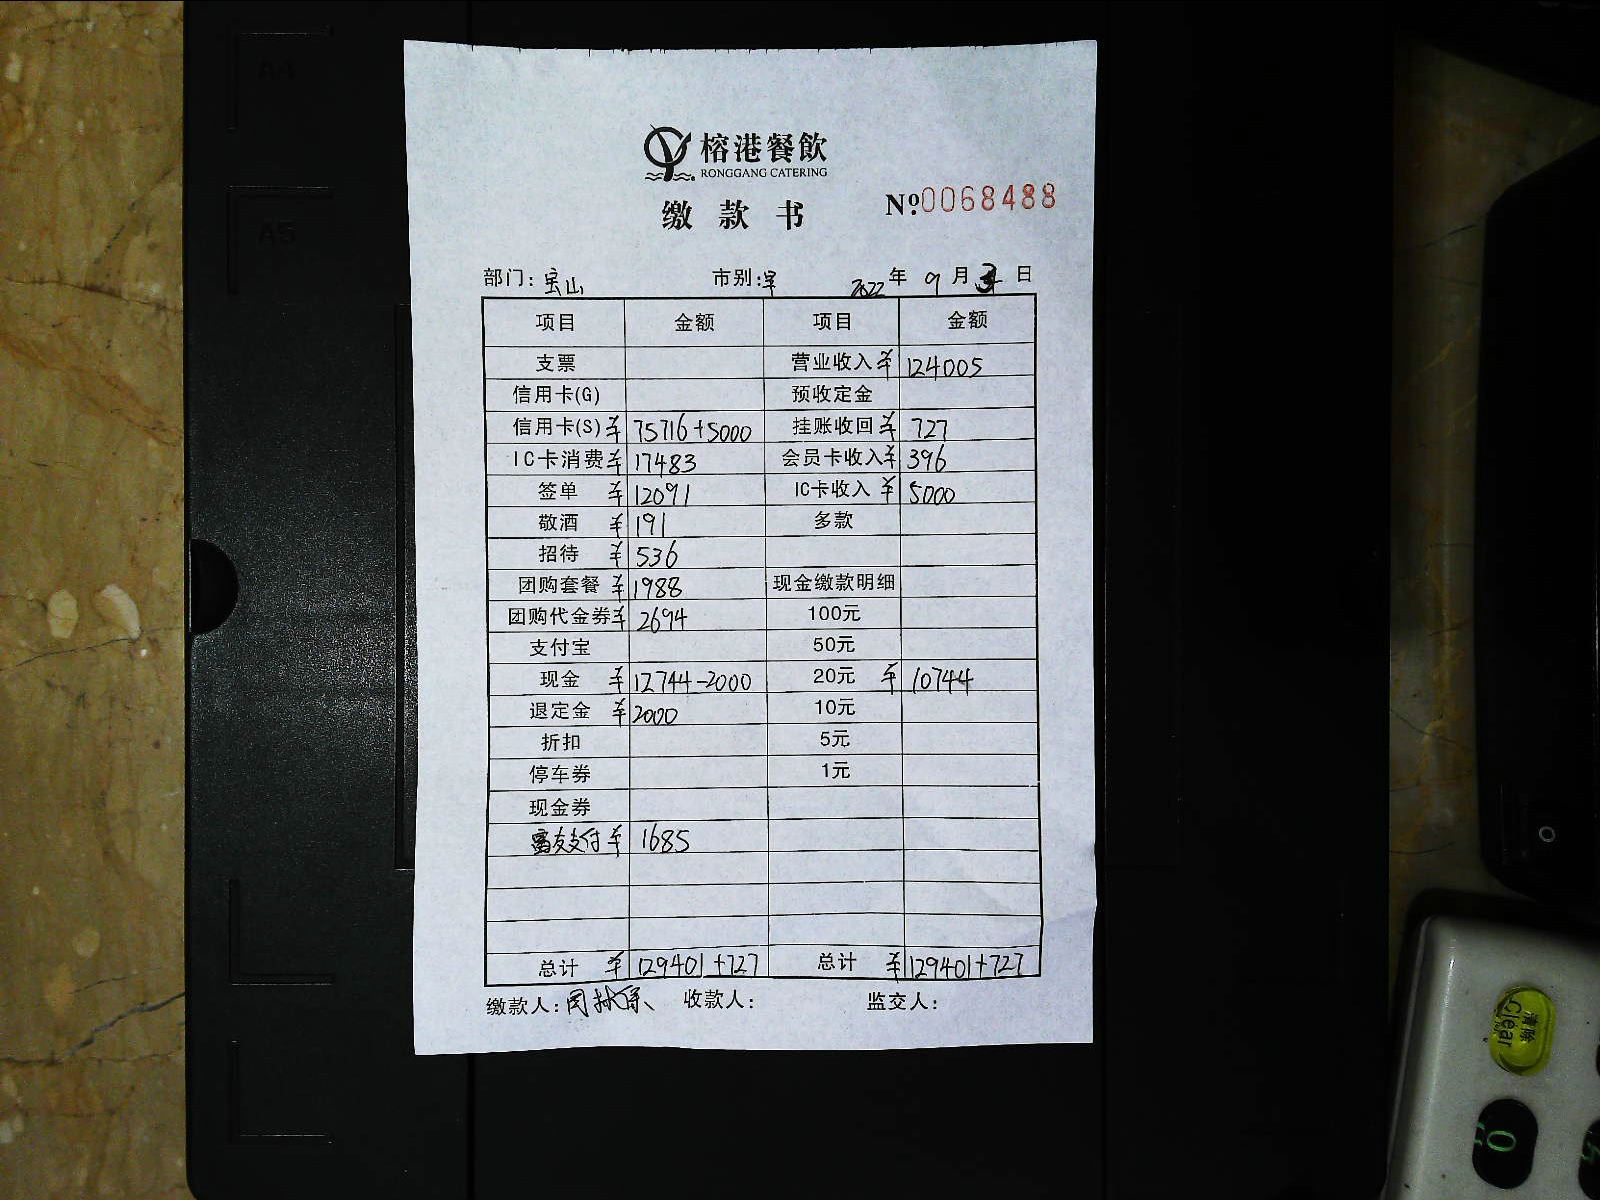 A4
A5
榕港餐飲
RONGGANG CATERING
缴款书
Nº:0068488
部门: 宝山 市别: 2022年 9月 日
项目 金额 项目 金额
支票 营业收入 ¥ 124005
信用卡(G) 预收定金
信用卡(S) ¥ 75716+5000 挂账收回 ¥ 727
IC卡消费 ¥ 17483 会员卡收入 ¥ 396
签单 ¥ 12091 IC卡收入 ¥ 5000
敬酒 ¥ 191 多款
招待 ¥ 536
团购套餐 ¥ 1988 现金缴款明细
团购代金券 ¥ 2694 100元
支付宝 50元
现金 ¥ 12744-2000 20元 ¥ 10744
退定金 ¥ 2000 10元
折扣 5元
停车券 1元
现金券
富友支付 ¥ 1685
总计 ¥ 129401+727 总计 ¥ 129401+727
缴款人: 收款人: 监交人:
清除
Clear
0